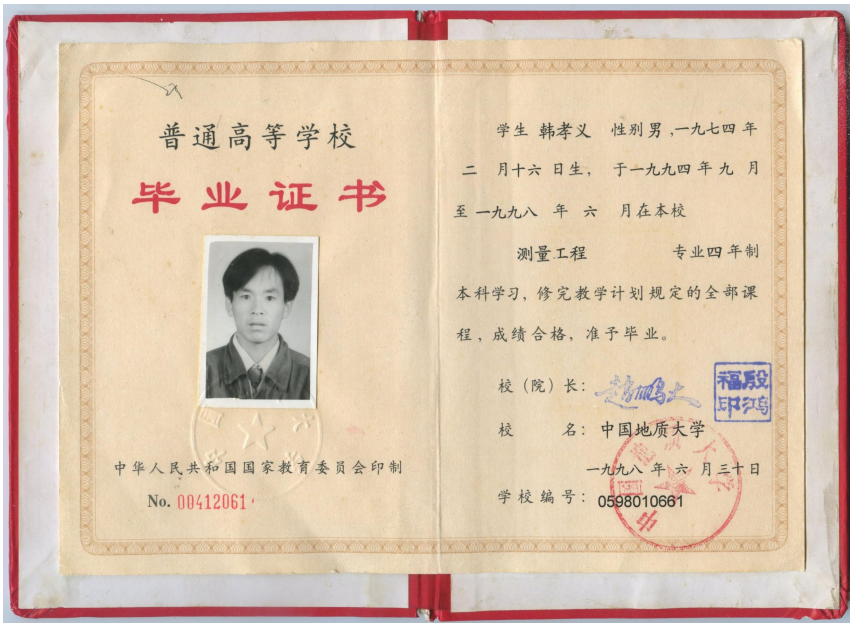 普通高等学校
毕业证书
中华人民共和国国家教育委员会印制
No. 00412061
学生 韩孝义 性别男,一九七四年
二 月十六日生, 于一九九四年九 月
至一九九八 年 六 月在本校
测量工程 专业四年制
本科学习,修完教学计划规定的全部课
程,成绩合格,准予毕业。
校(院)长: 赵鹏大
殷鸿福印
校 名: 中国地质大学
一九九八 年 六 月三十日
学校编号: 0598010661
中国地质大学